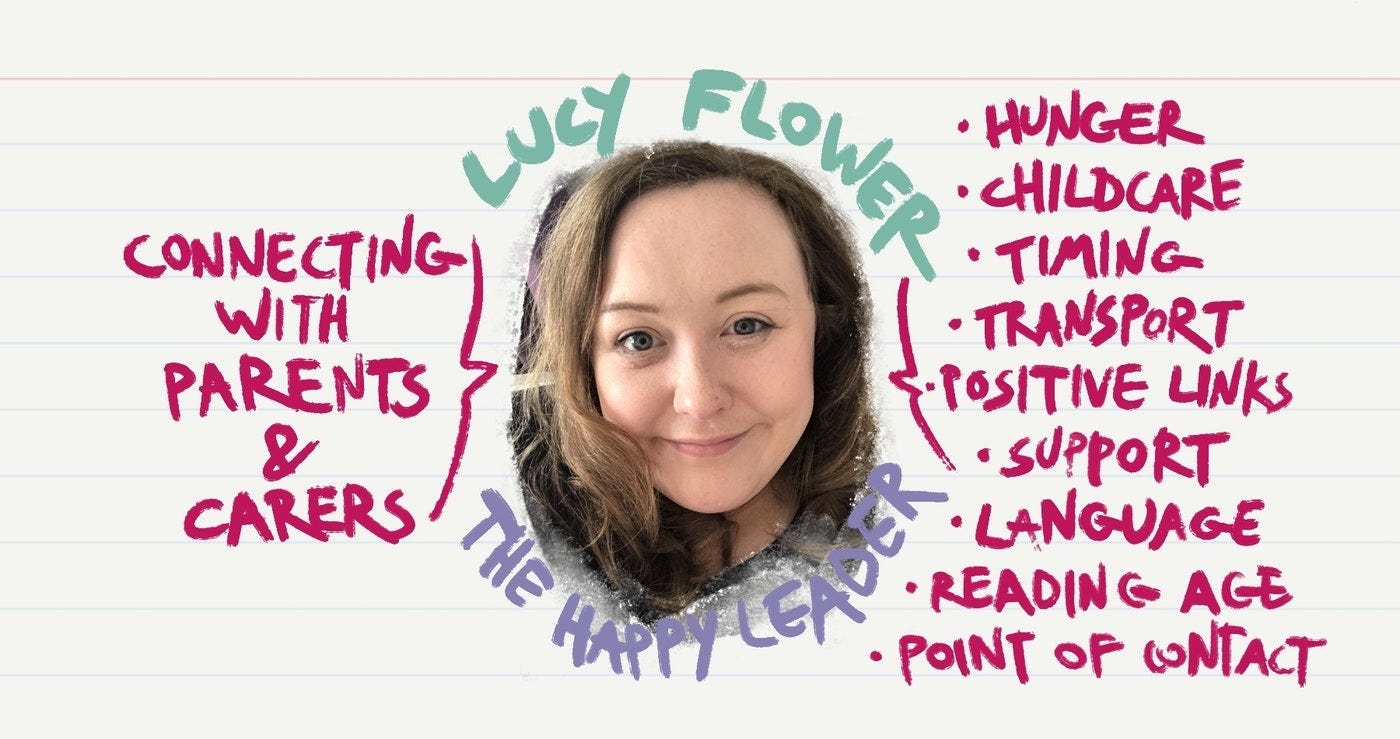 LUCY FLOWER
CONNECTING
WITH
PARENTS
&
CARERS
THE HAPPY LEADER
· HUNGER
· CHILDCARE
· TIMING
· TRANSPORT
· POSITIVE LINKS
· SUPPORT
· LANGUAGE
· READING AGE
· POINT OF CONTACT